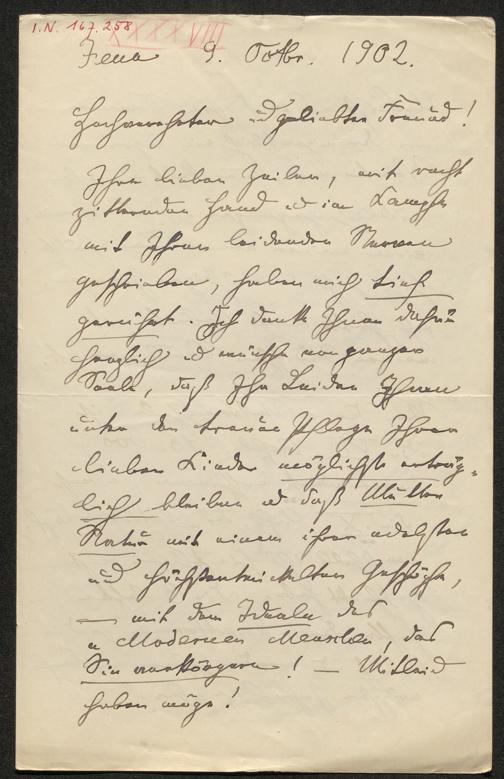 I.N. 167.258
XXXXVIII
Jena 9. Octbr. 1902.
Hochverehrter und geliebter Freund!
Ihre lieben Zeilen, mit recht
zitternder Hand u im Kampfe
mit Ihren leidenden Nerven
geschrieben, haben mich tief
gerührt. Ich danke Ihnen dafür
herzlich u wünsche von ganzer
Seele, daß Ihr Leiden Ihnen
unter der treuen Pflege Ihrer
lieben Kinder möglichst erträg-
lich bleiben u daß Mutter
Natur mit einem ihrer edelsten
und höchstentwickelten Geschöpfe,
— mit dem Ideale des
„Modernen Menschen, das
Sie verkörpern! — Mitleid
haben möge!